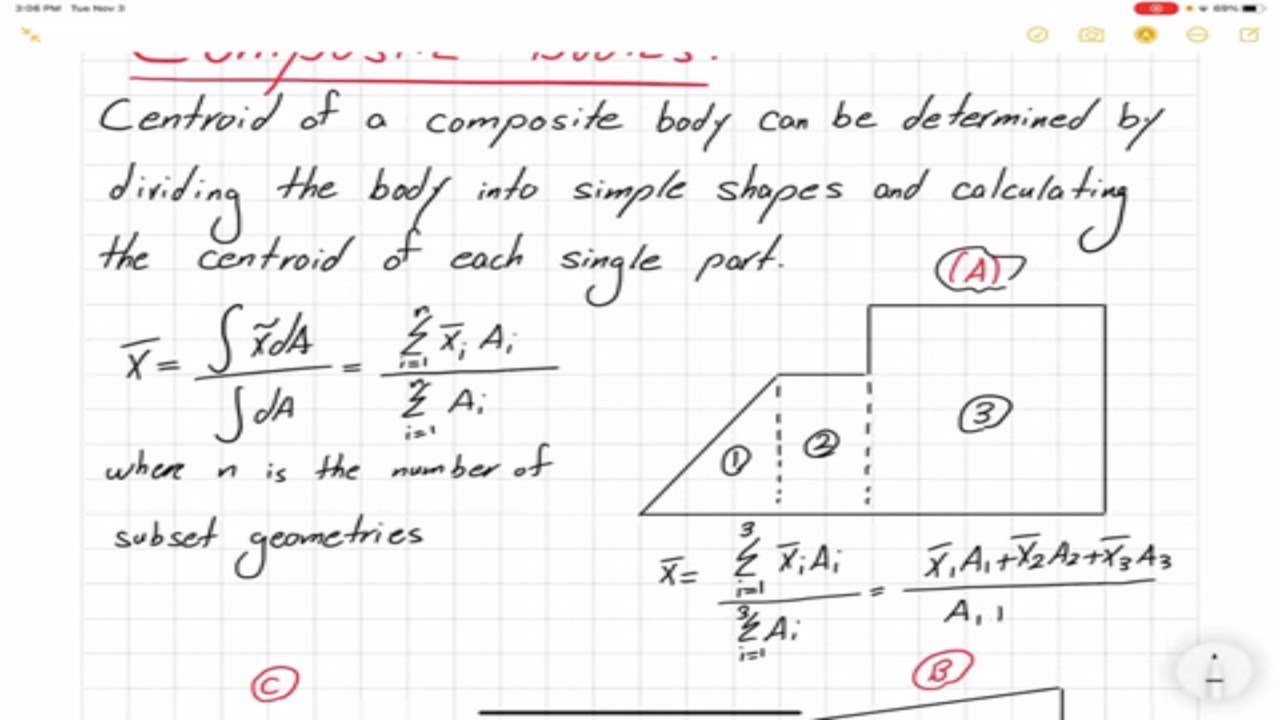 3:06 PM Tue Nov 3
69%
Composite Bodies:
Centroid of a composite body can be determined by
dividing the body into simple shapes and calculating
the centroid of each single part.
(A)
X̄ = ∫x̃dA / ∫dA = Σ_{i=1}^{n} x̄ᵢ Aᵢ / Σ_{i=1}^{n} Aᵢ
① ② ③
where n is the number of
subset geometries
x̄ = Σ_{i=1}^{3} x̄ᵢAᵢ / Σ_{i=1}^{3} Aᵢ = x̄₁A₁+x̄₂A₂+x̄₃A₃ / A₁
Ⓒ Ⓑ